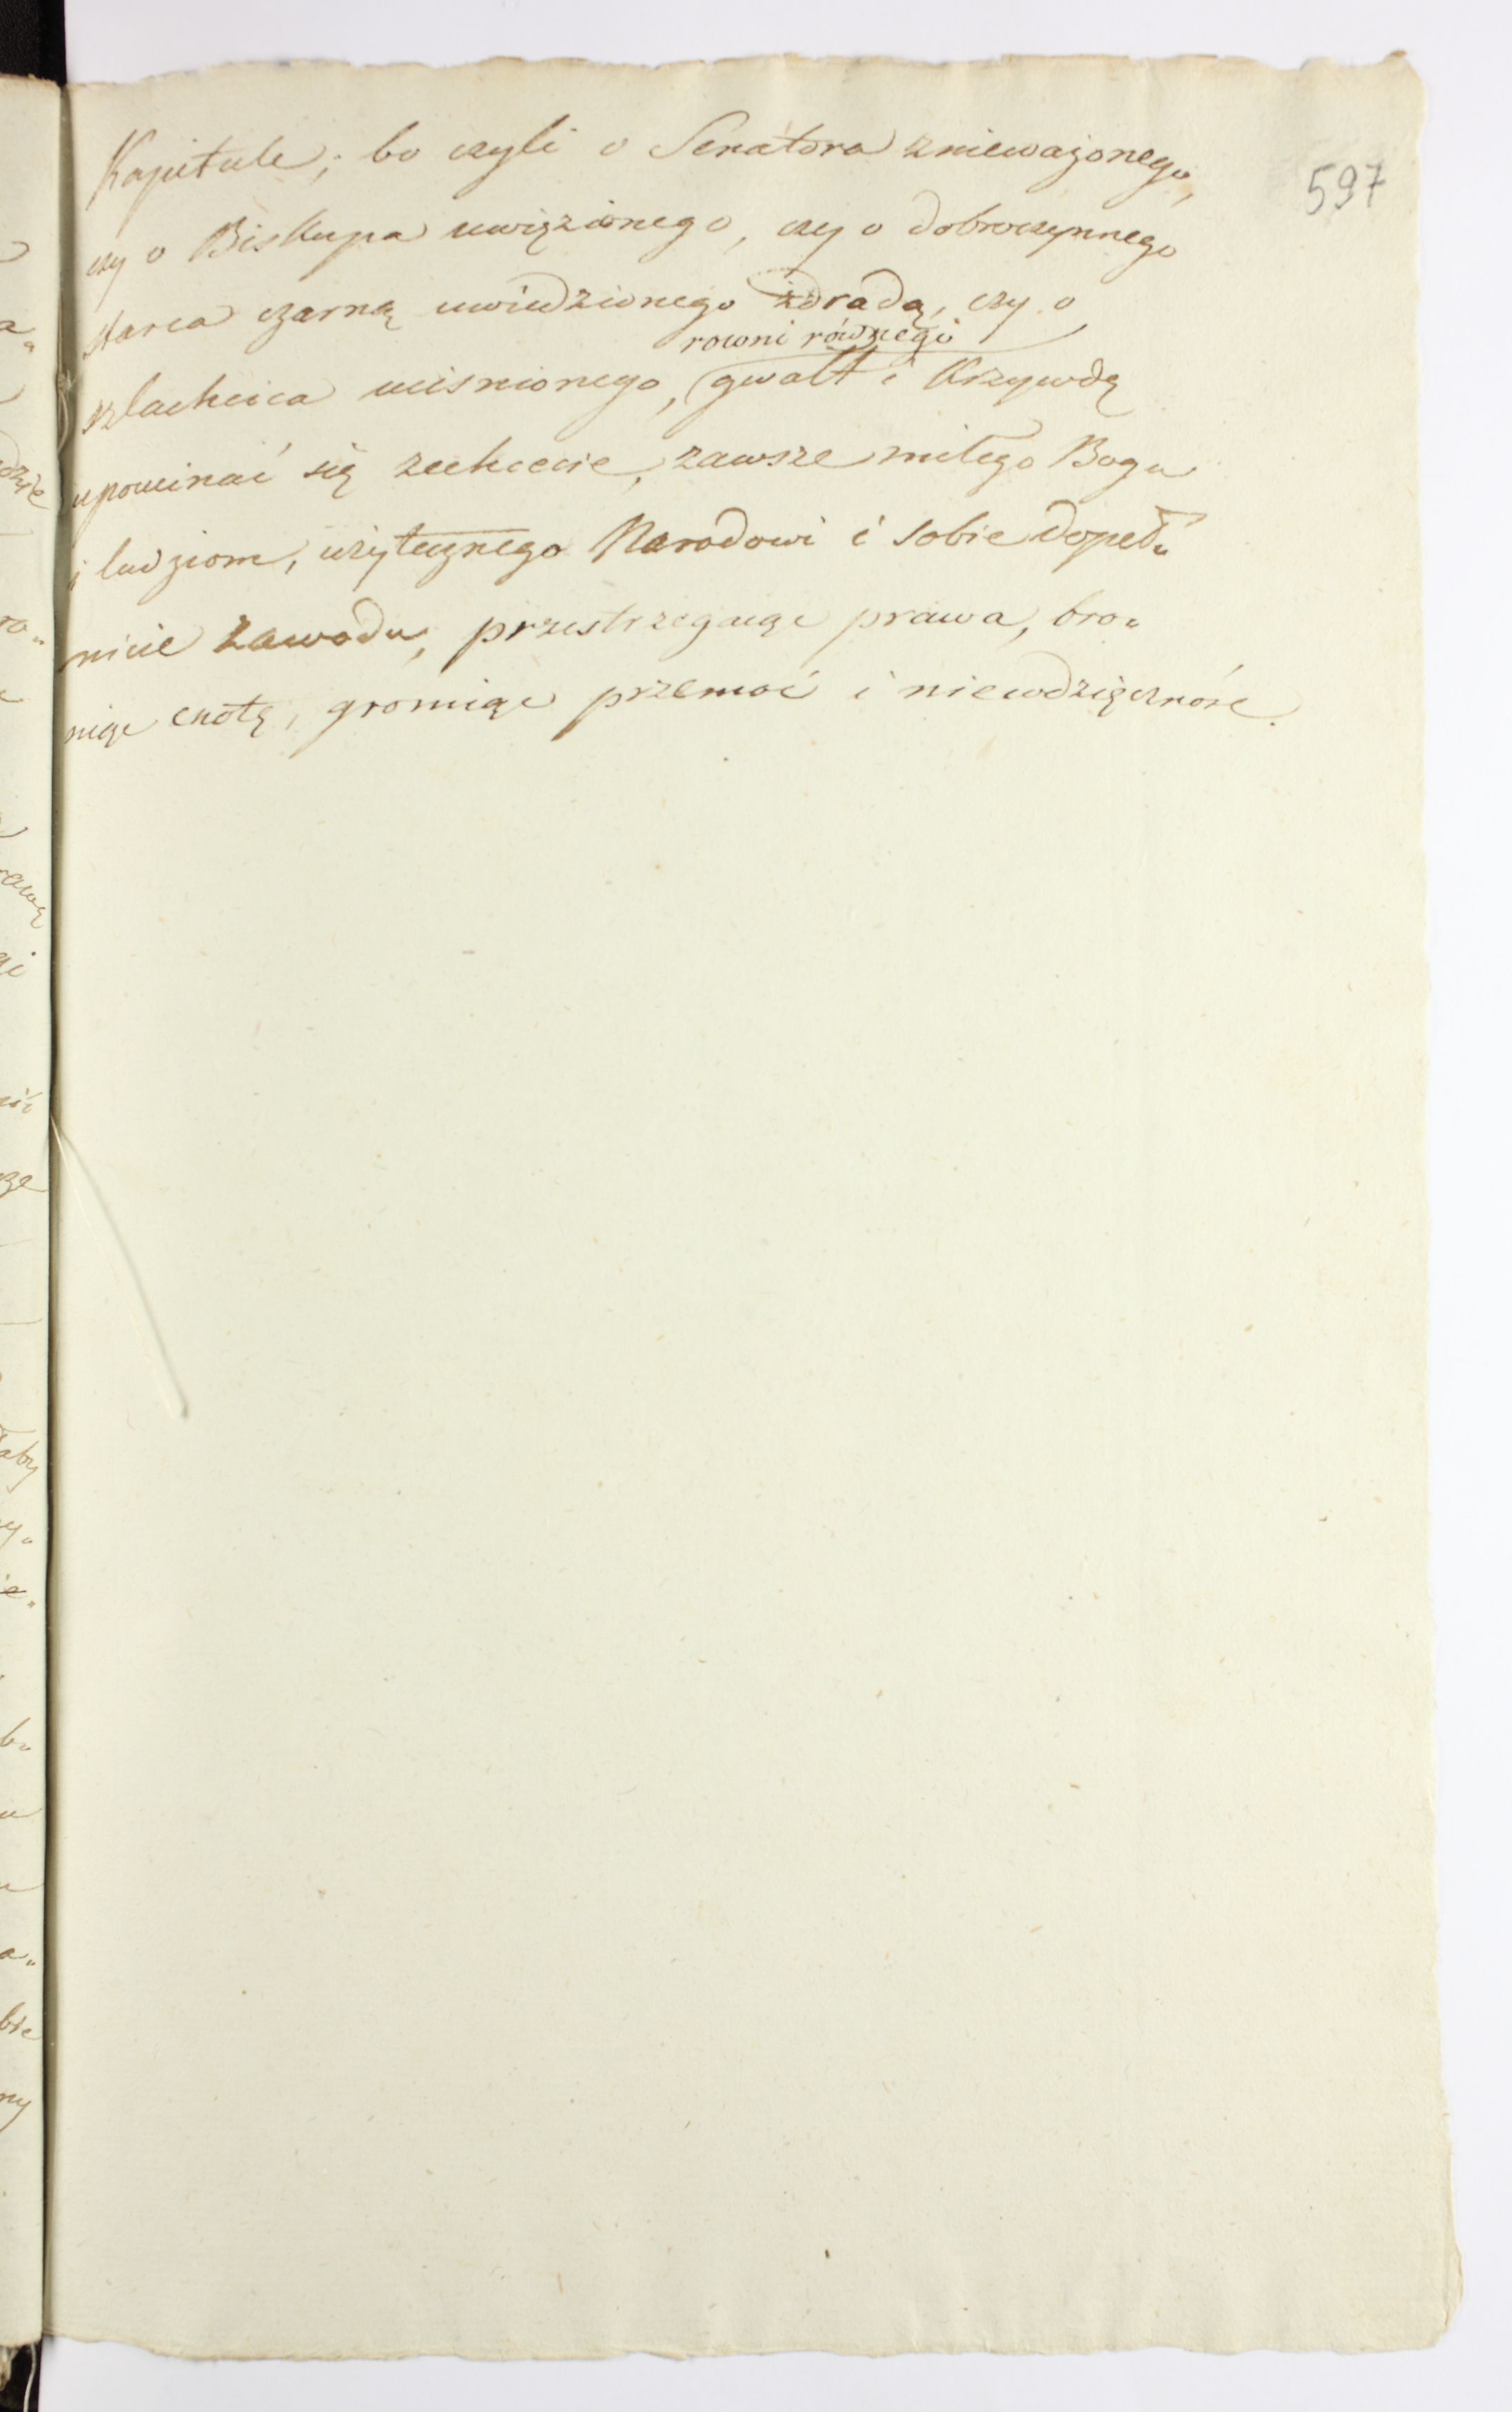 597
Kapitule; bo czyli o Senatora znieważonego,
czy o Biskupa uwięzionego, czy o dobroczynnego
starca czarną uwiedzionego zdradą, czy o
rowni równego
szlachcica uciśnionego, gwałt i Krzywdę
upominać się zechcecie, zawsze miłego Bogu
i ludziom, użytecznego Narodowi i sobie dopeł„
nicie zawodu, przestrzegaiąc prawa, bro„
niąc cnotę, gromiąc przemoc i niewdzięczność.